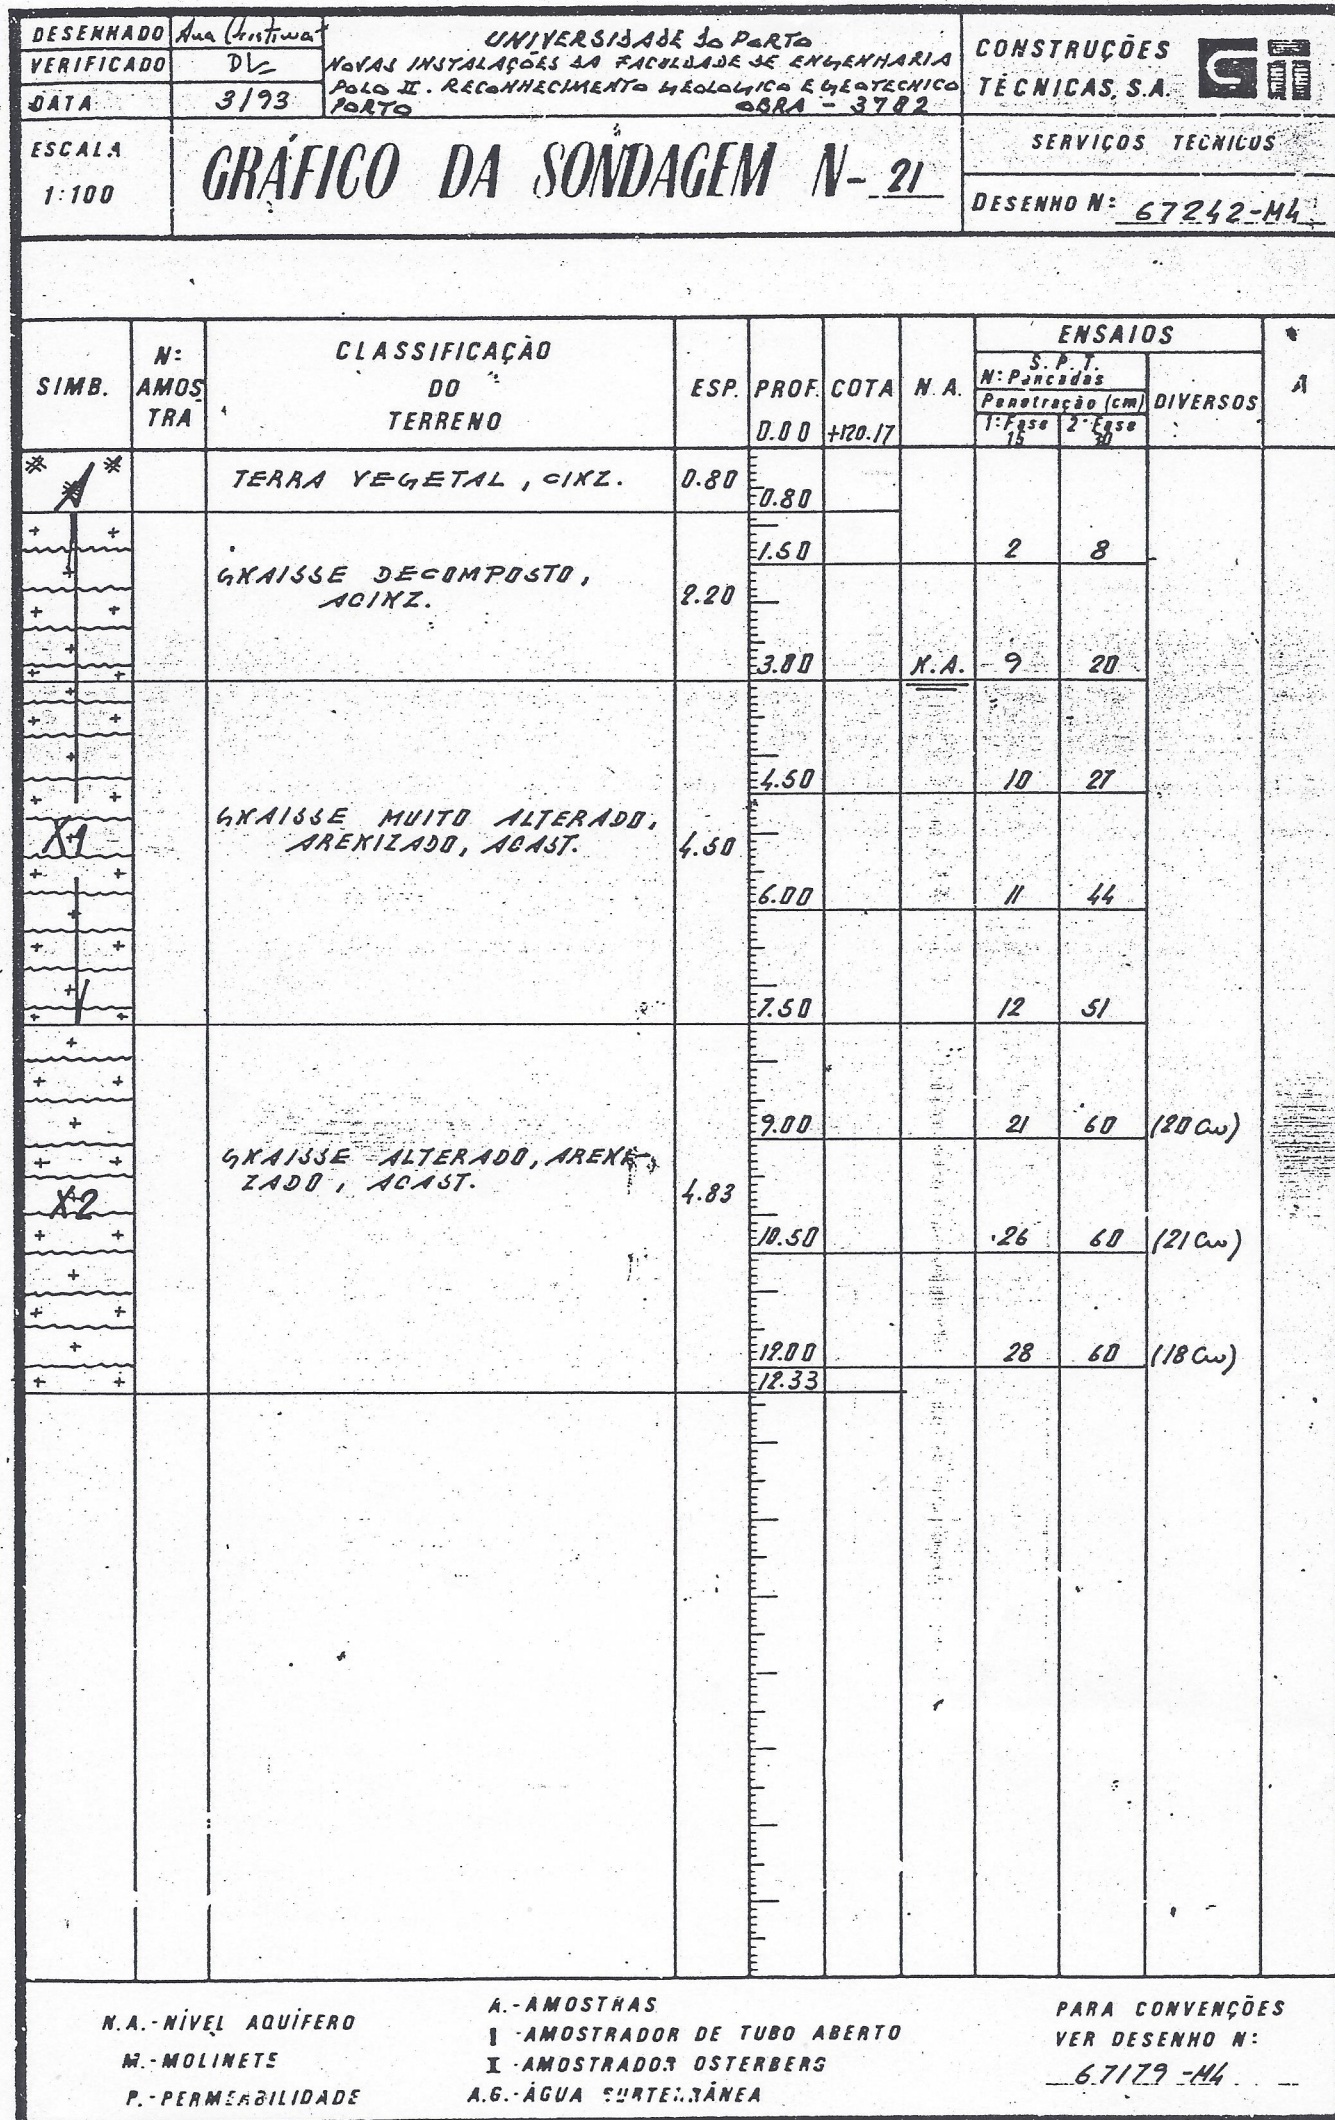 DESENHADO Ana Cristina
VERIFICADO
DATA 3/93
UNIVERSIDADE DO PORTO
NOVAS INSTALAÇÕES DA FACULDADE DE ENGENHARIA
POLO II. RECONHECIMENTO GEOLOGICO E GEOTECNICO
PORTO OBRA - 3782
CONSTRUÇÕES
TÉCNICAS, S.A.
ESCALA
1:100
GRÁFICO DA SONDAGEM N- 21
SERVIÇOS TECNICOS
DESENHO N: 67242-M4
SIMB.
N:
AMOS
TRA
CLASSIFICAÇÃO
DO
TERRENO
ESP.
PROF.
0.00
COTA
+120.17
N.A.
ENSAIOS
S.P.T.
N: Pancadas
Penetração (cm)
1: Fase
15
2: Fase
30
DIVERSOS
A
TERRA VEGETAL, CINZ. 0.80 0.80
1.50 2 8
GNAISSE DECOMPOSTO,
ACINZ. 2.20
3.00 N.A. 9 20
4.50 10 27
GNAISSE MUITO ALTERADO,
X1 ARENIZADO, ACAST. 4.50
6.00 11 44
7.50 12 51
9.00 21 60 (20 cm)
GNAISSE ALTERADO, ARENI-
ZADO, ACAST. 4.83
X2
10.50 26 60 (21 cm)
12.00 28 60 (18 cm)
12.33
N.A.-NÍVEL AQUÍFERO
M.-MOLINETE
P.-PERMEABILIDADE
A.-AMOSTRAS
I -AMOSTRADOR DE TUBO ABERTO
I -AMOSTRADOR OSTERBERG
A.G.-ÁGUA SUBTERRÂNEA
PARA CONVENÇÕES
VER DESENHO N:
67179-M4